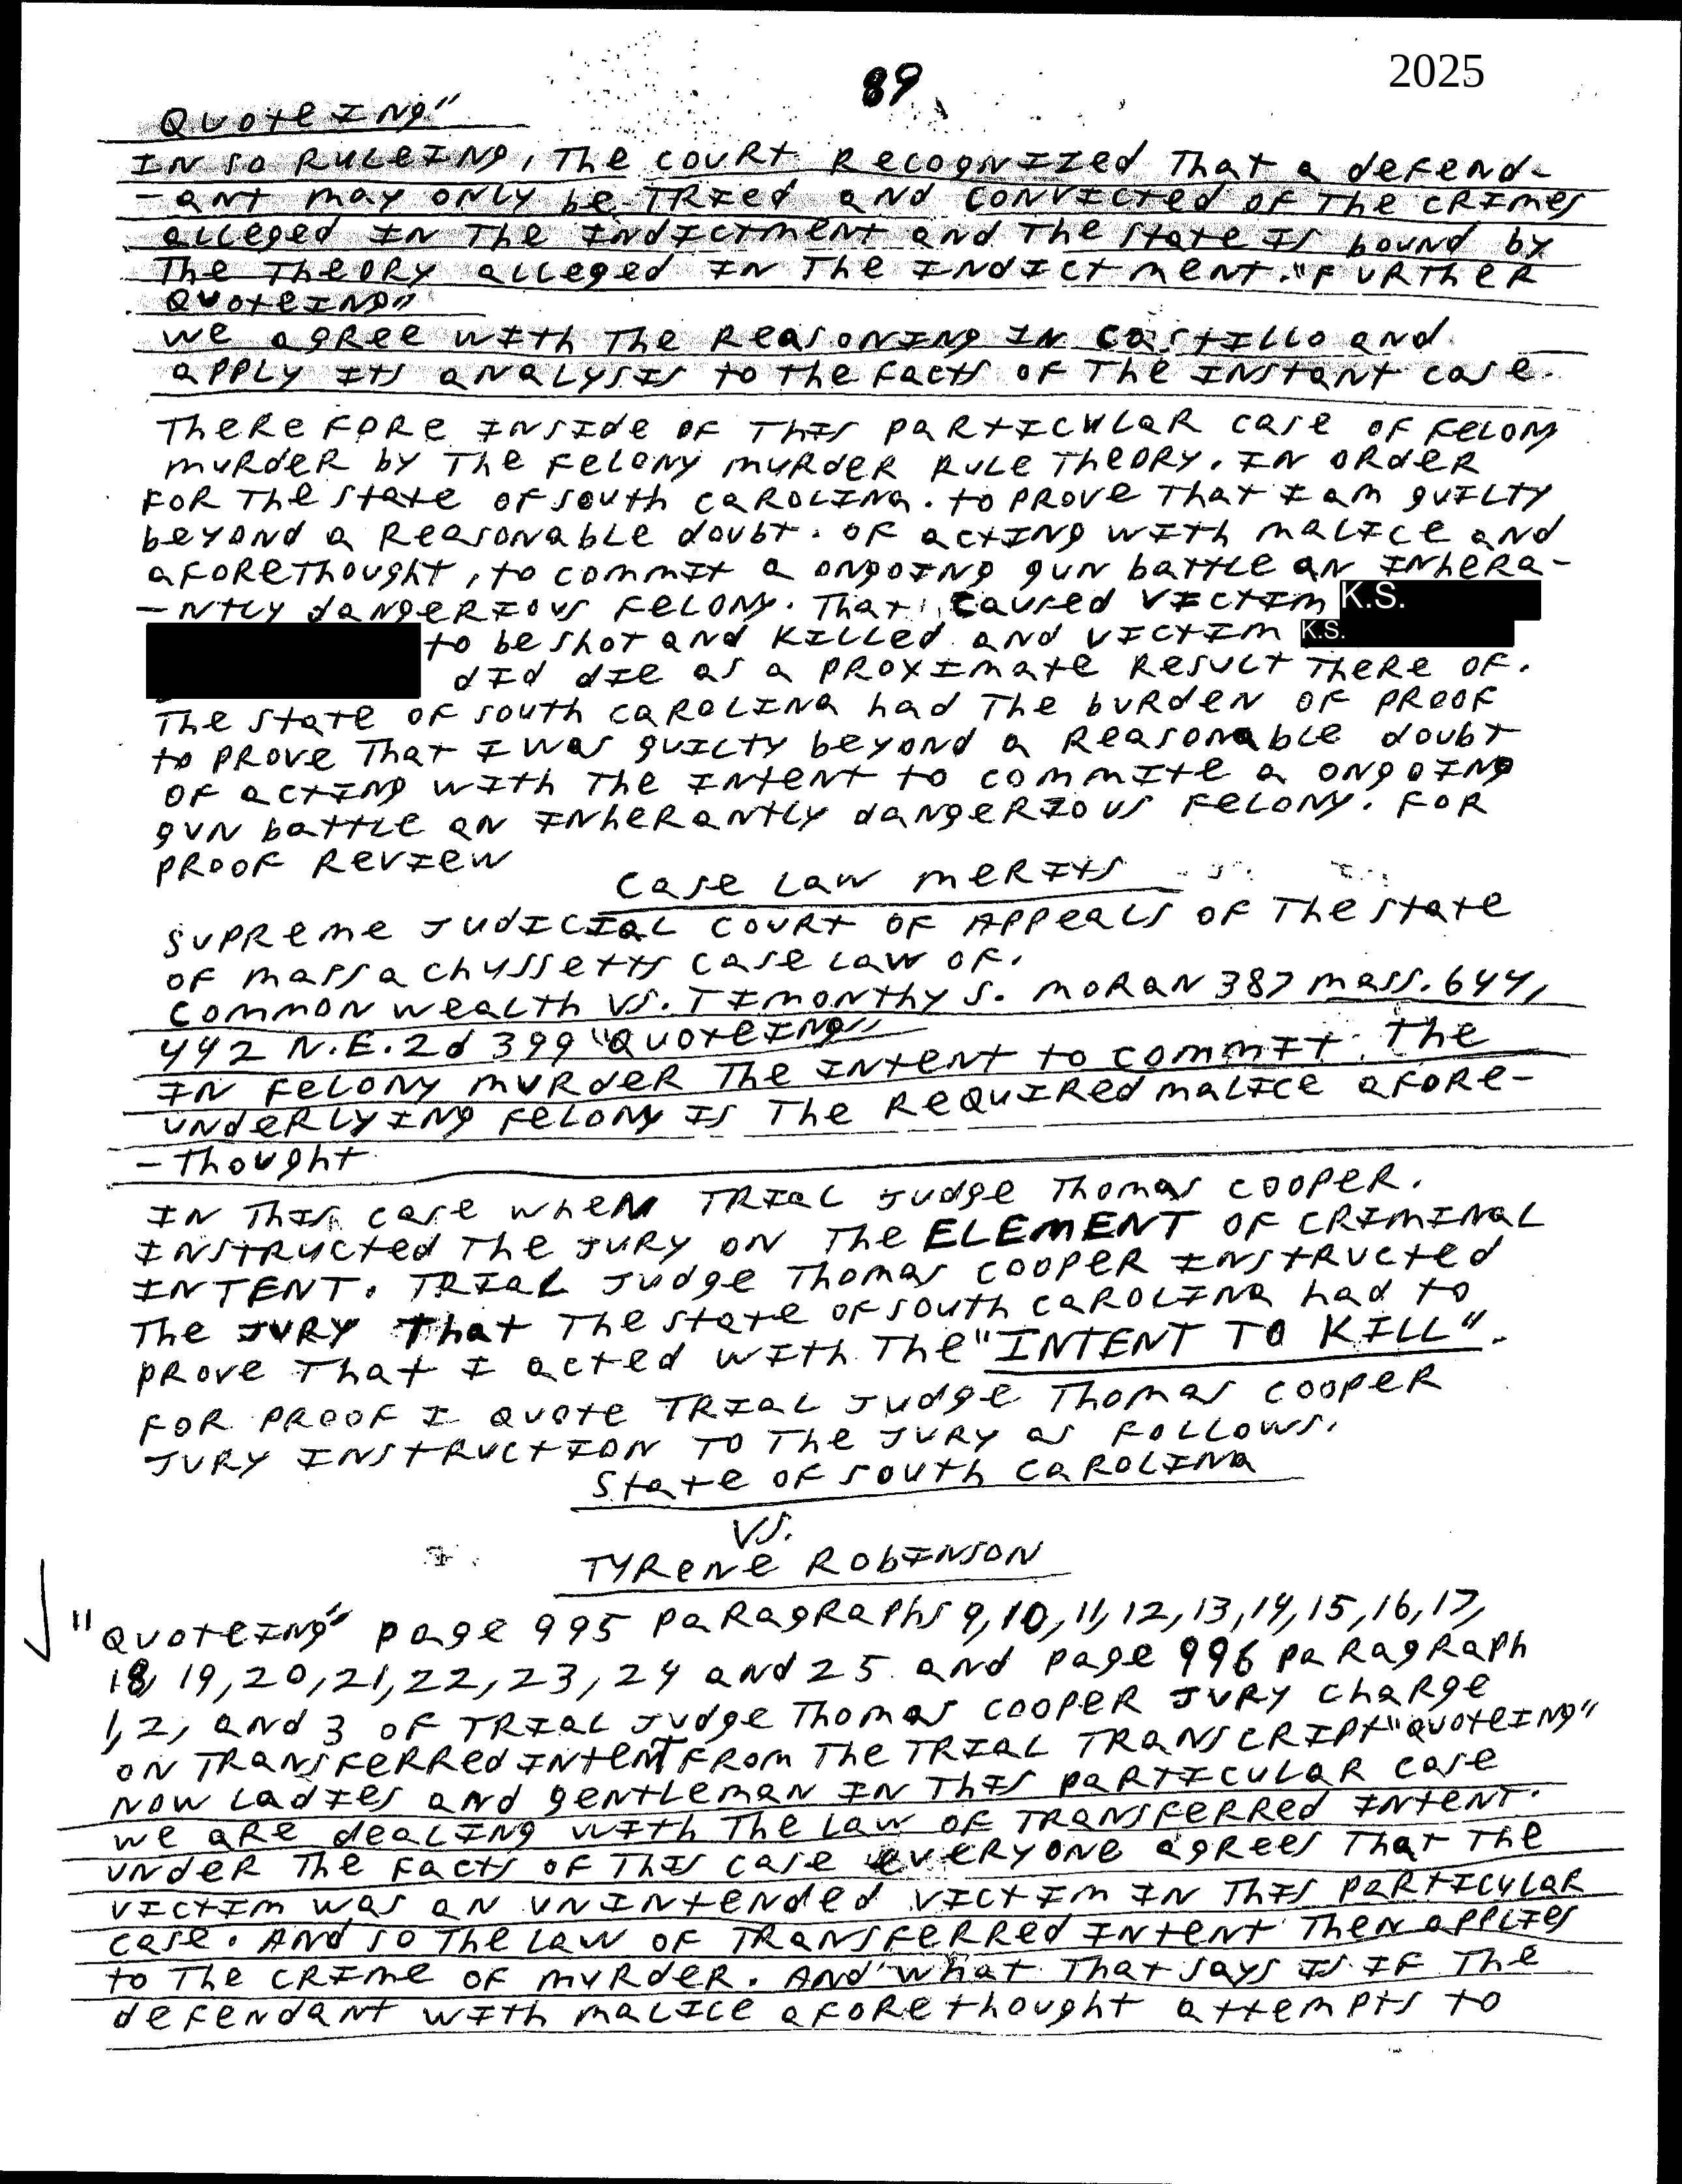 2025
89
QUOTEING"
IN SO RULEING, THE COURT RECOGNIZED THAT a defend-
-ANT MAY ONLY be TRIED AND CONVICTED OF THE CRIMES
ALLEGED IN THE INDICTMENT AND THE STATE IS bOUND by
THE THEORY ALLEGED IN THE INDICTMENT. "FURTHER
QUOTEING"
WE AGREE WITH THE REASONING IN CASTILLO AND
APPLY ITS ANALYSIS TO THE FACTS OF THE INSTANT CASE.
THEREFORE INSIDE OF THIS PARTICULAR CASE OF FELONY
MURDER BY THE FELONY MURDER RULE THEORY. IN ORDER
FOR THE STATE OF SOUTH CAROLINA. TO PROVE THAT I AM GUILTY
BEYOND A REASONABLE DOUBT. OF ACTING WITH MALICE AND
AFORETHOUGHT, TO COMMIT A ONGOING GUN BATTLE AN INHERA-
-NTLY DANGERIOUS FELONY. THAT CAUSED VICTIM K.S.
TO BE SHOT AND KILLED AND VICTIM K.S.
DID DIE AS A PROXIMATE RESULT THERE OF.
THE STATE OF SOUTH CAROLINA HAD THE BURDEN OF PROOF
TO PROVE THAT I WAS GUILTY BEYOND A REASONABLE DOUBT
OF ACTING WITH THE INTENT TO COMMITE A ONGOING
GUN BATTLE AN INHERANTLY DANGERIOUS FELONY. FOR
PROOF REVIEW
CASE LAW MERITS
SUPREME JUDICIAL COURT OF APPEALS OF THE STATE
OF MASSACHYSSETTS CASE LAW OF.
COMMON WEALTH VS. TIMONTHY S. MORAN 387 MASS. 644,
442 N.E.2d 399 "QUOTEING"
IN FELONY MURDER THE INTENT TO COMMIT THE
UNDERLYING FELONY IS THE REQUIRED MALICE AFORE-
-THOUGHT
IN THIS CASE WHEN TRIAL JUDGE THOMAS COOPER.
INSTRUCTED THE JURY ON THE ELEMENT OF CRIMINAL
INTENT. TRIAL JUDGE THOMAS COOPER INSTRUCTED
THE JURY THAT THE STATE OF SOUTH CAROLINA HAD TO
PROVE THAT I ACTED WITH THE "INTENT TO KILL".
FOR PROOF I QUOTE TRIAL JUDGE THOMAS COOPER
JURY INSTRUCTION TO THE JURY AS FOLLOWS.
STATE OF SOUTH CAROLINA
VS.
TYRENE ROBINSON
"QUOTEING" PAGE 995 PARAGRAPHS 9,10,11,12,13,14,15,16,17,
18, 19,20,21,22,23,24 AND 25 AND PAGE 996 PARAGRAPH
1,2, AND 3 OF TRIAL JUDGE THOMAS COOPER JURY CHARGE
ON TRANSFERRED INTENT FROM THE TRIAL TRANSCRIPT "QUOTEING"
NOW LADIES AND GENTLEMAN IN THIS PARTICULAR CASE
WE ARE DEALING WITH THE LAW OF TRANSFERRED INTENT.
UNDER THE FACTS OF THIS CASE EVERYONE AGREES THAT THE
VICTIM WAS AN UNINTENDED VICTIM IN THIS PARTICULAR
CASE. AND SO THE LAW OF TRANSFERRED INTENT THEN APPLIES
TO THE CRIME OF MURDER. AND WHAT THAT SAYS IS IF THE
DEFENDANT WITH MALICE AFORETHOUGHT ATTEMPTS TO